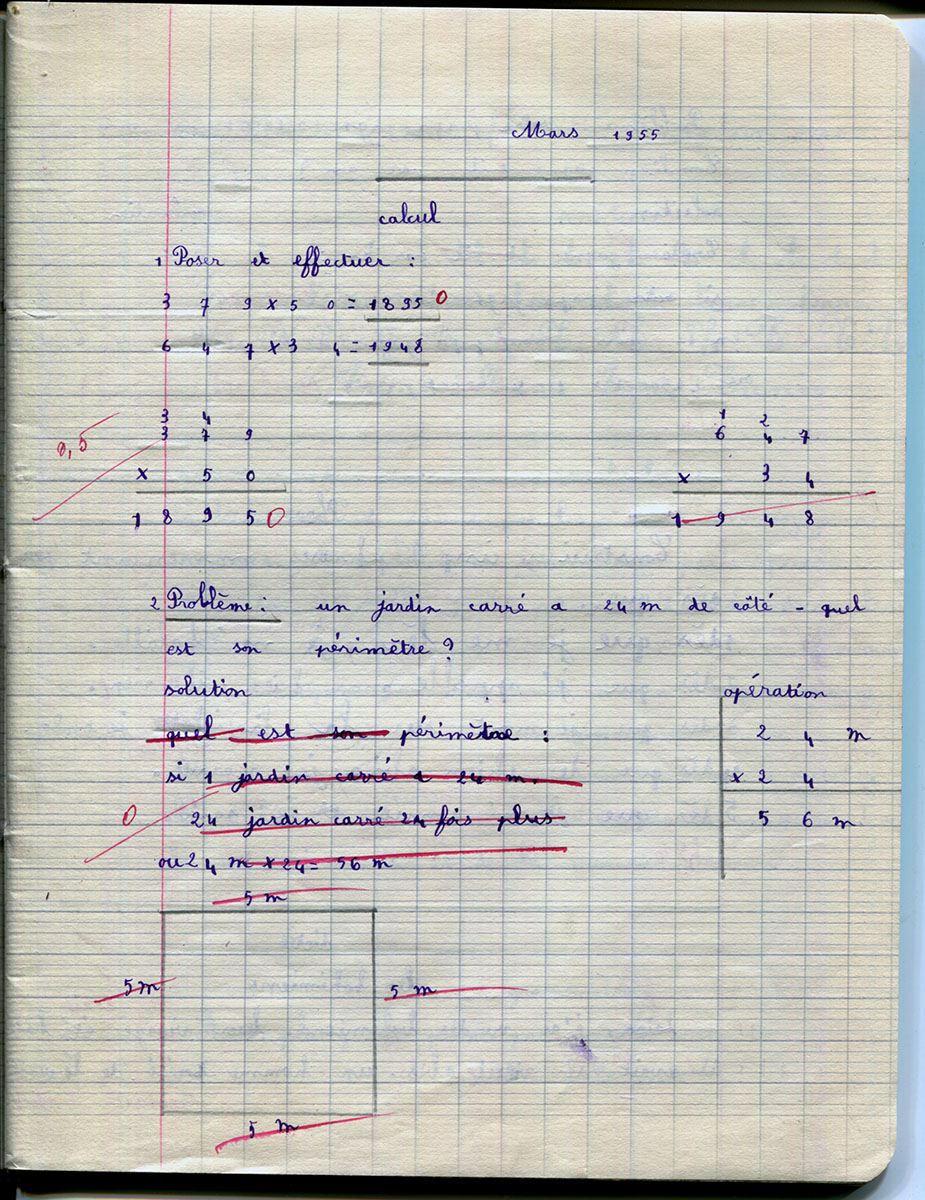 Mars 1955
calcul
1 Poser et effectuer :
3 7 9 x 5 0 = 1895 0
6 4 7 x 3 4 = 1948
0,5
3 4
3 7 9
x 5 0
1 8 9 5 0
1 2
6 4 7
x 3 4
1 9 4 8
2 Problème : un jardin carré a 24 m de côté - quel
est son périmètre ?
solution
opération
quel est son périmètre :
si 1 jardin carré a 24 m.
0
24 jardin carré 24 fois plus
ou 24 m x 24 = 56 m
2 4 m
x 2 4
5 6 m
5 m
5 m
5 m
5 m